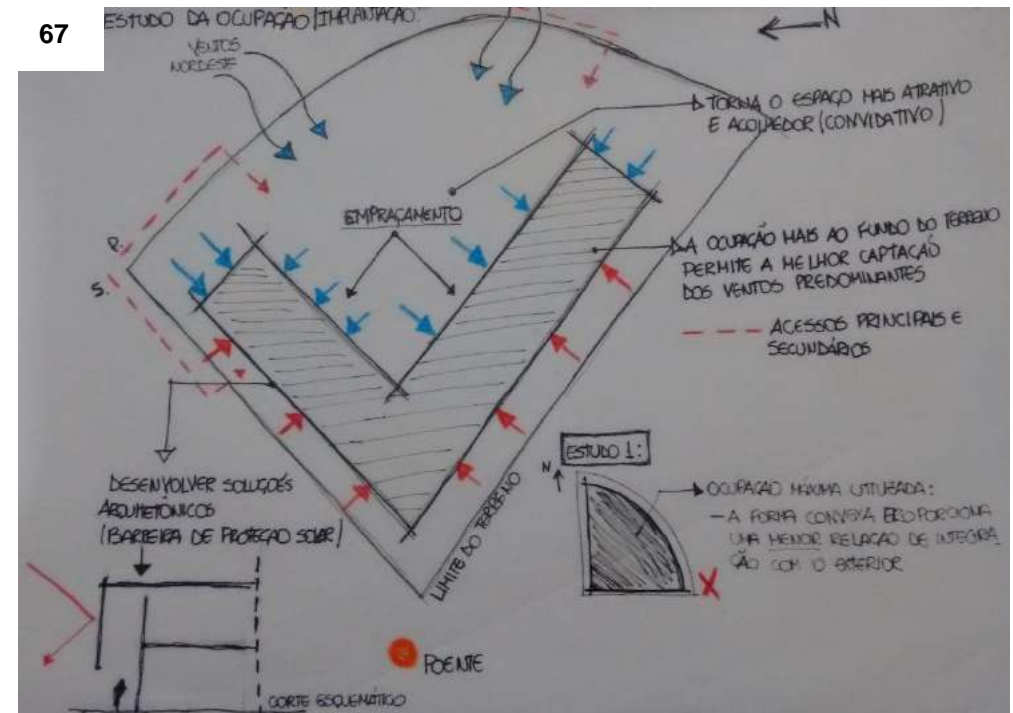 67
ESTUDO DA OCUPAÇÃO/IMPLANTAÇÃO:
N
VENTOS
NORDESTE
TORNA O ESPAÇO MAIS ATRATIVO
E ACOLHEDOR (CONVIDATIVO)
EMPRAÇAMENTO
P.
S.
A OCUPAÇÃO MAIS AO FUNDO DO TERRENO
PERMITE A MELHOR CAPTAÇAÕ
DOS VENTOS PREDOMINANTES
ACESSOS PRINCIPAIS E
SECUNDÁRIOS
DESENVOLVER SOLUÇÕES
ARQUITETÔNICOS
(BARREIRA DE PROTEÇÃO SOLAR)
LIMITE DO TERRENO
ESTUDO 1:
N
OCUPAÇÃO MÁXIMA UTILIZADA:
- A FORMA CONVEXA PROPORCIONA
UMA MENOR RELAÇÃO DE INTEGRA
ÇÃO COM O EXTERIOR
X
POENTE
CORTE ESQUEMÁTICO